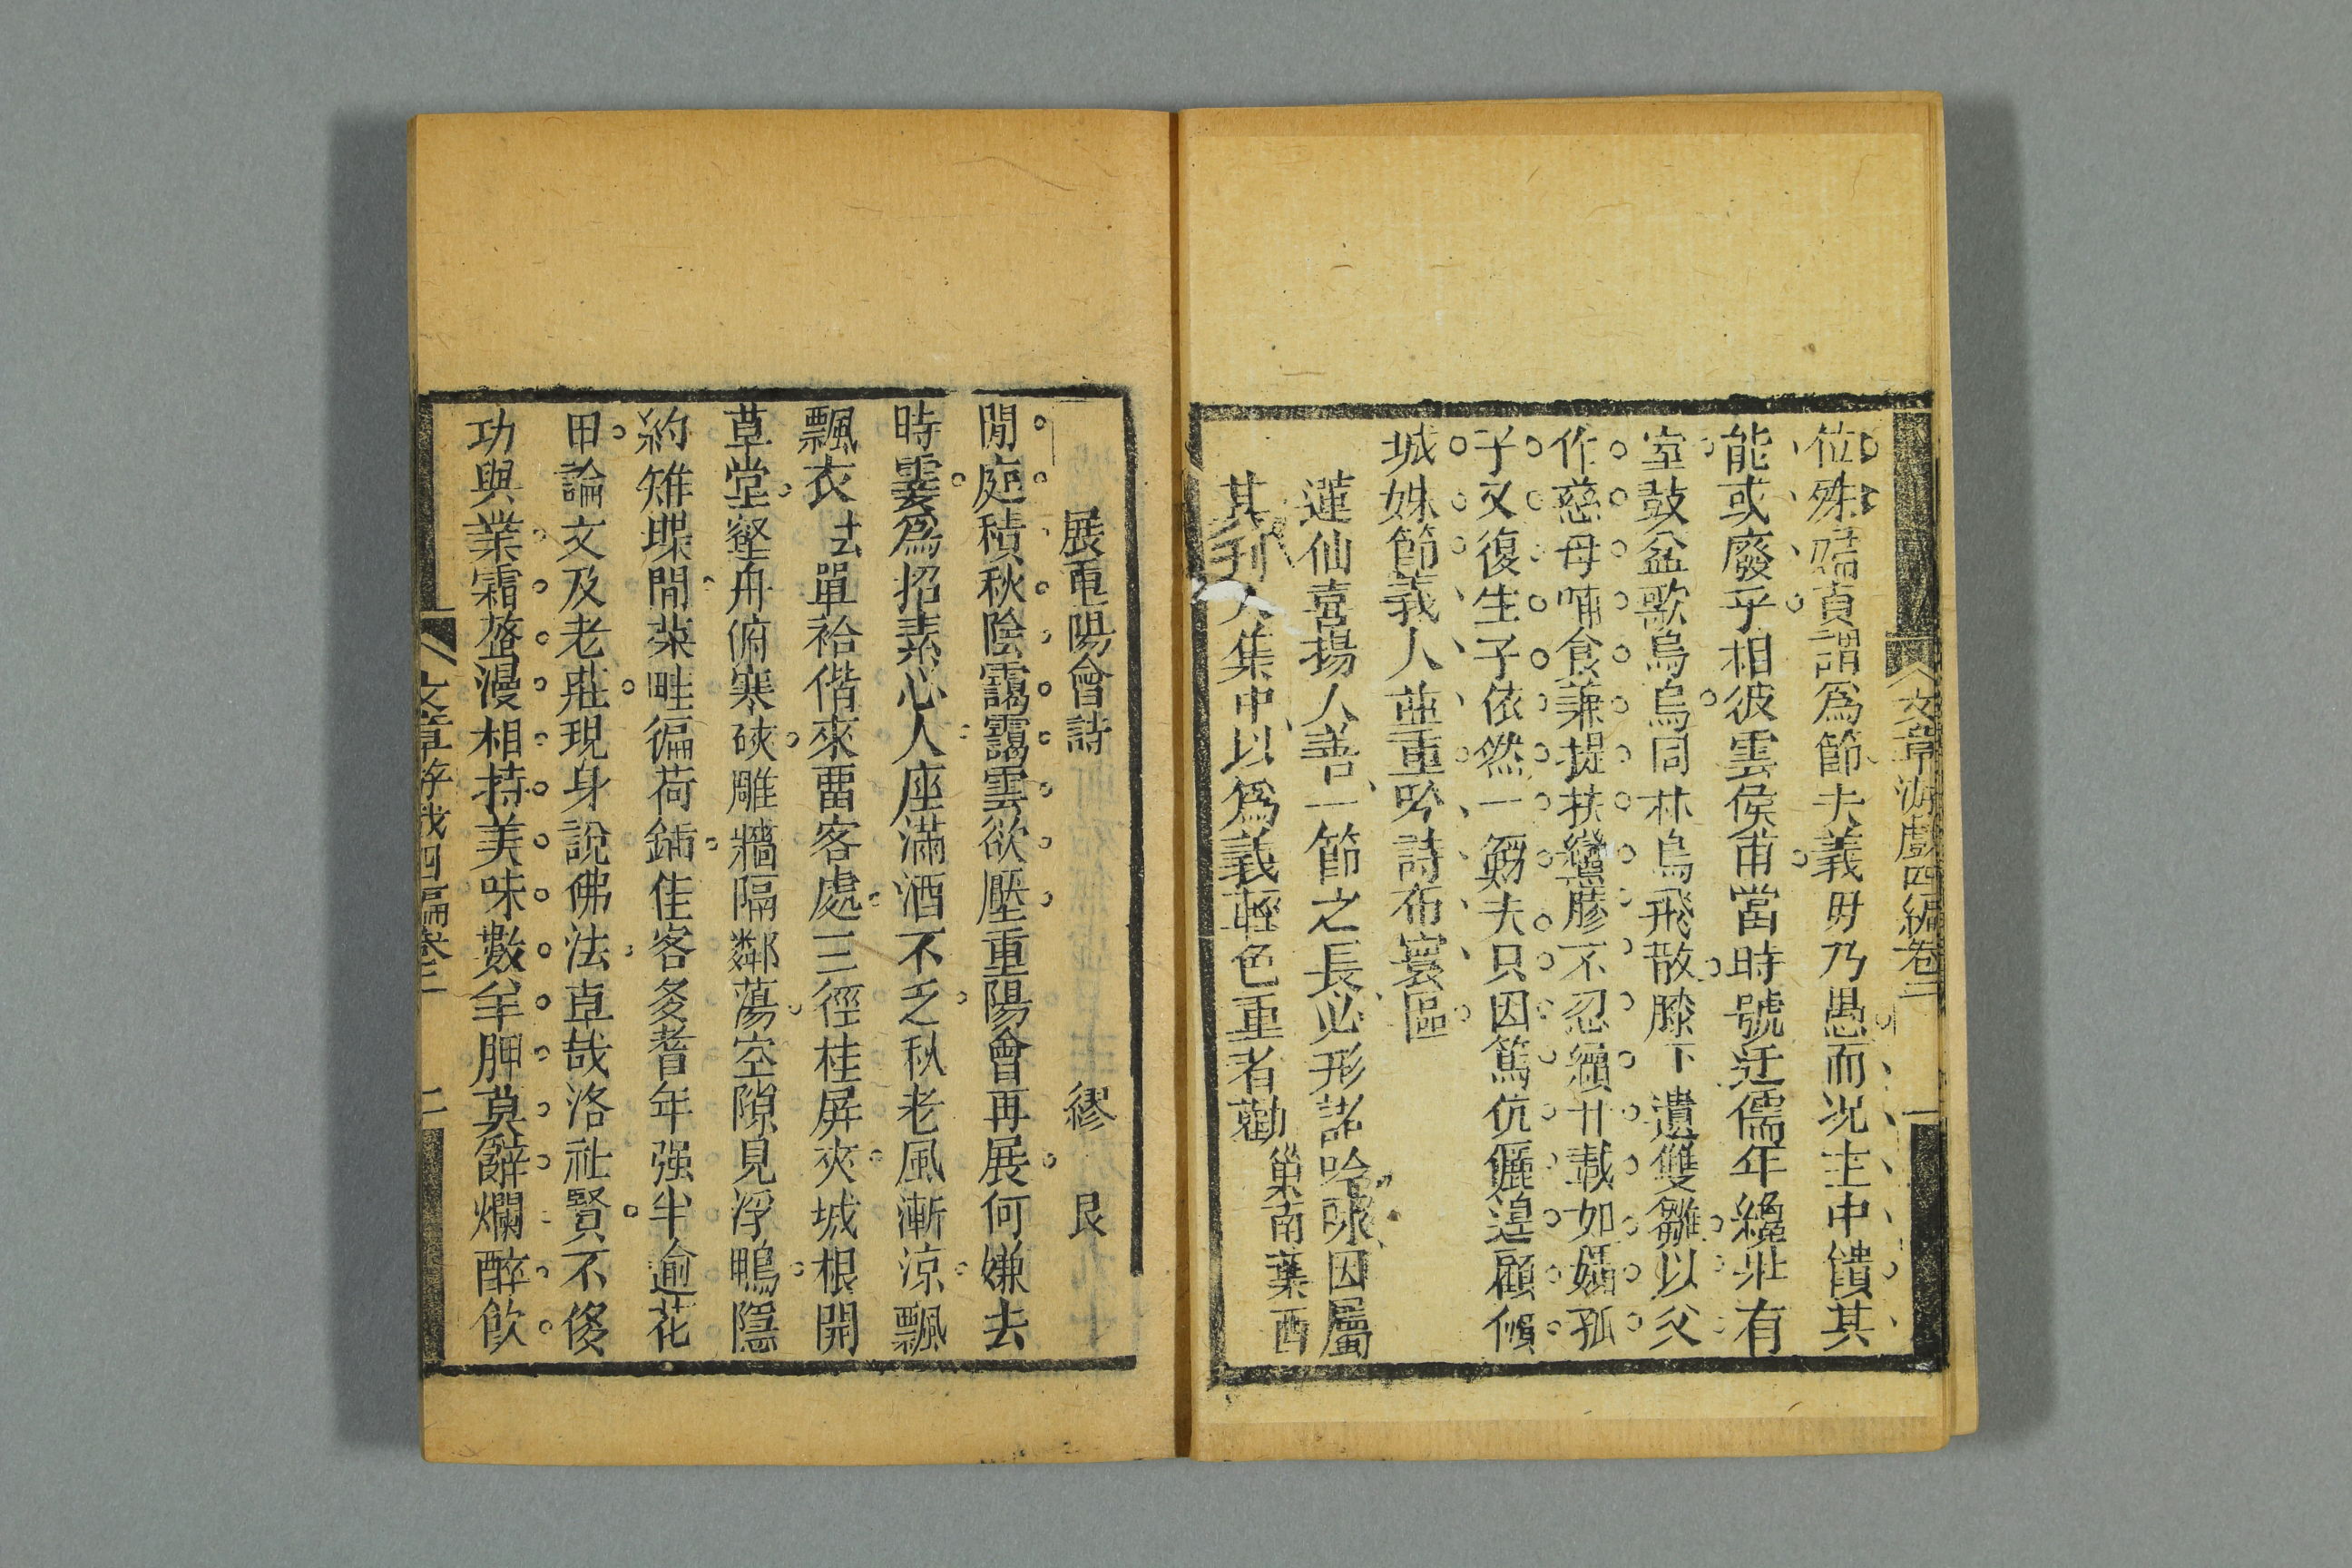 文章游戲四編卷二
位殊 謂爲節夫義毋乃愚而况主中饋其
能或廢乎相彼雲侯甫當時號迂儒年纔壯有
室鼓盆歌烏烏同林烏飛散膝下遺雙雛以父
作慈母哺食兼提扶鸞膠不忍續廿載如孀孤
子又復生子依然一鰥夫只因篤伉儷遑顧傾
城姝節義人並重吟詩布寰區
蓮仙喜揚人善一節之長必形諸吟咏因屬
其刊入集中以爲義輕色重者勸 巢南葉酉
展重陽會詩 繆艮
閒庭積秋陰靄靄雲欲壓重陽會再展何嫌去
時霎爲招素心人座滿酒不乏秋老風漸涼飄
飄衣 單袷偕來畱客處三徑桂屏夾城根開
草堂壑舟俯寒硤雕牆隔鄰蕩空隙見浮鴨隱
約雉堞間菜畦徧荷鍤佳客多耆年强半逾花
甲論文及老莊現身說佛法卓哉洛社賢不俊
功與業霜螯漫相持美味數羊胛莫辭爛醉飲
文章游戲四編卷二 二